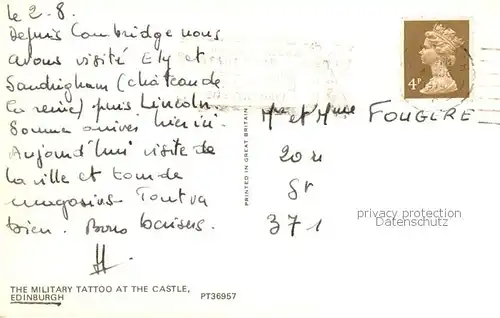 le 2-8.
Depuis Cambridge nous
avons visité Ely et
Sandrigham (château de
la reine) puis Lincoln.
Somme arrivés hier ici.
Aujourd'hui visite de
la ville et tour de
magasins. Tout va
bien. Bons baisers.
H.
THE MILITARY TATTOO AT THE CASTLE,
EDINBURGH
PT36957
PRINTED IN GREAT BRITAIN
4P
Mr et Mme FOUGERE
20
Sr
371
privacy protection
Datenschutz